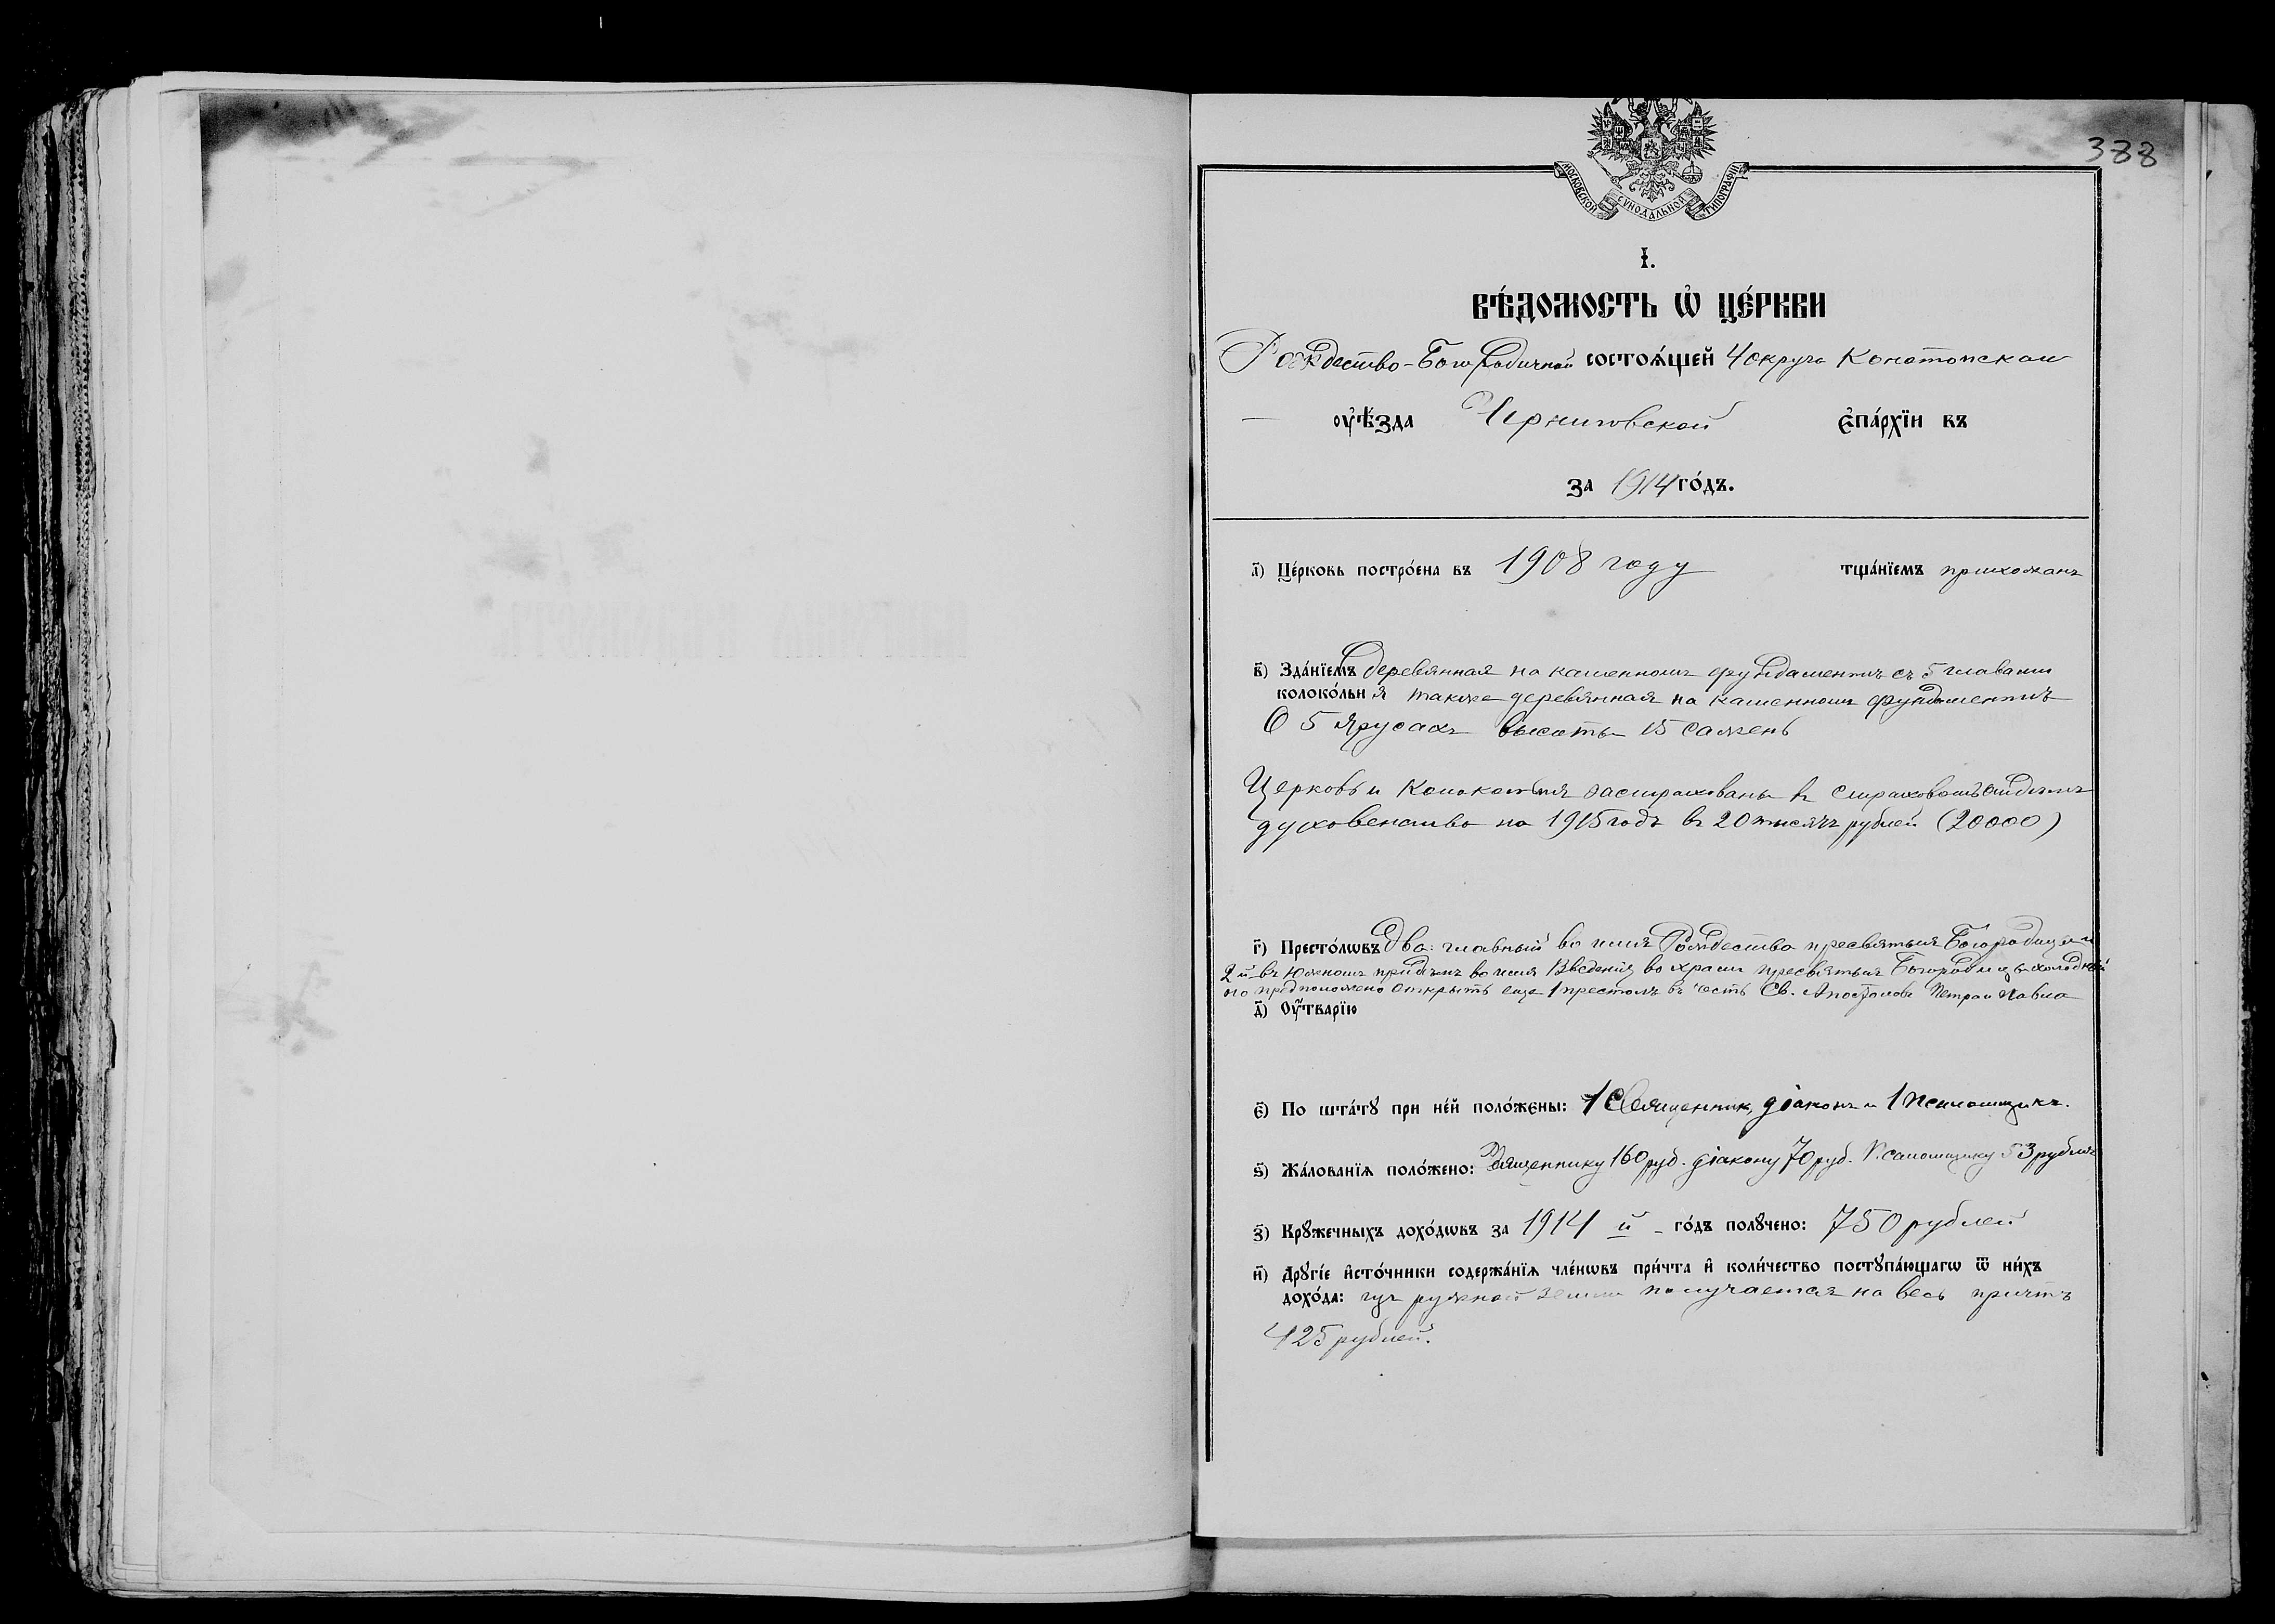 388
МОСКОВСКОЙ СѴНОДАЛЬНОЙ ТИПОГРАФІИ
I.
ВѢ́ДОМОСТЬ Ѡ҆ ЦЕ́РКВИ
Рождество-Богородичной состоѧ́щей 4 округа Конотопскаго
— ᲂу҆ѣ́зда Черниговской є҆па́рхїи въ
за 1914 го́дъ.
а҃) Це́рковь постро́ена въ 1908 году тща́нїемъ прихожанъ
в҃) Зда́нїемъ деревянная на каменномъ фундаментѣ съ 5 главами
колоко́льня также деревянная на каменномъ фундаментѣ
о 5 ярусахъ высоты 15 сажень
Церковь и колокольня застрахованы въ страховомъ отдѣлѣ
духовенства на 1915 годъ въ 20 тысячъ рублей (20000)
г҃) Престо́лѡвъ два: главный во имя Рождества пресвятыя Богородицы и
2й въ южномъ придѣлѣ во имя Введенія во храмъ пресвятыя Богородицы холодный
но предположено открыть еще 1 престолъ въ честь Св. Апостоловъ Петра и Павла
д҃) Оу҆́тварїю
є҃) По шта́тꙋ при не́й поло́жены: 1 Священник, діаконъ и 1 псаломщикъ.
ѕ҃) Жа́лованїѧ поло́жено: Священнику 160 руб. діакону 70 руб. Псаломщику 53 рубля
з҃) Крꙋ́жечныхъ дохо́дѡвъ за 1914 й го́дъ полꙋ́чено: 750 рублей
и҃) Дрꙋгі́е и҆сто́чники содержа́нїѧ чле́нѡвъ при́чта и҆ коли́чество постꙋпа́ющагѡ ѿ ни́хъ
дохо́да: изъ ружной земли получается на весь причтъ
425 рублей.